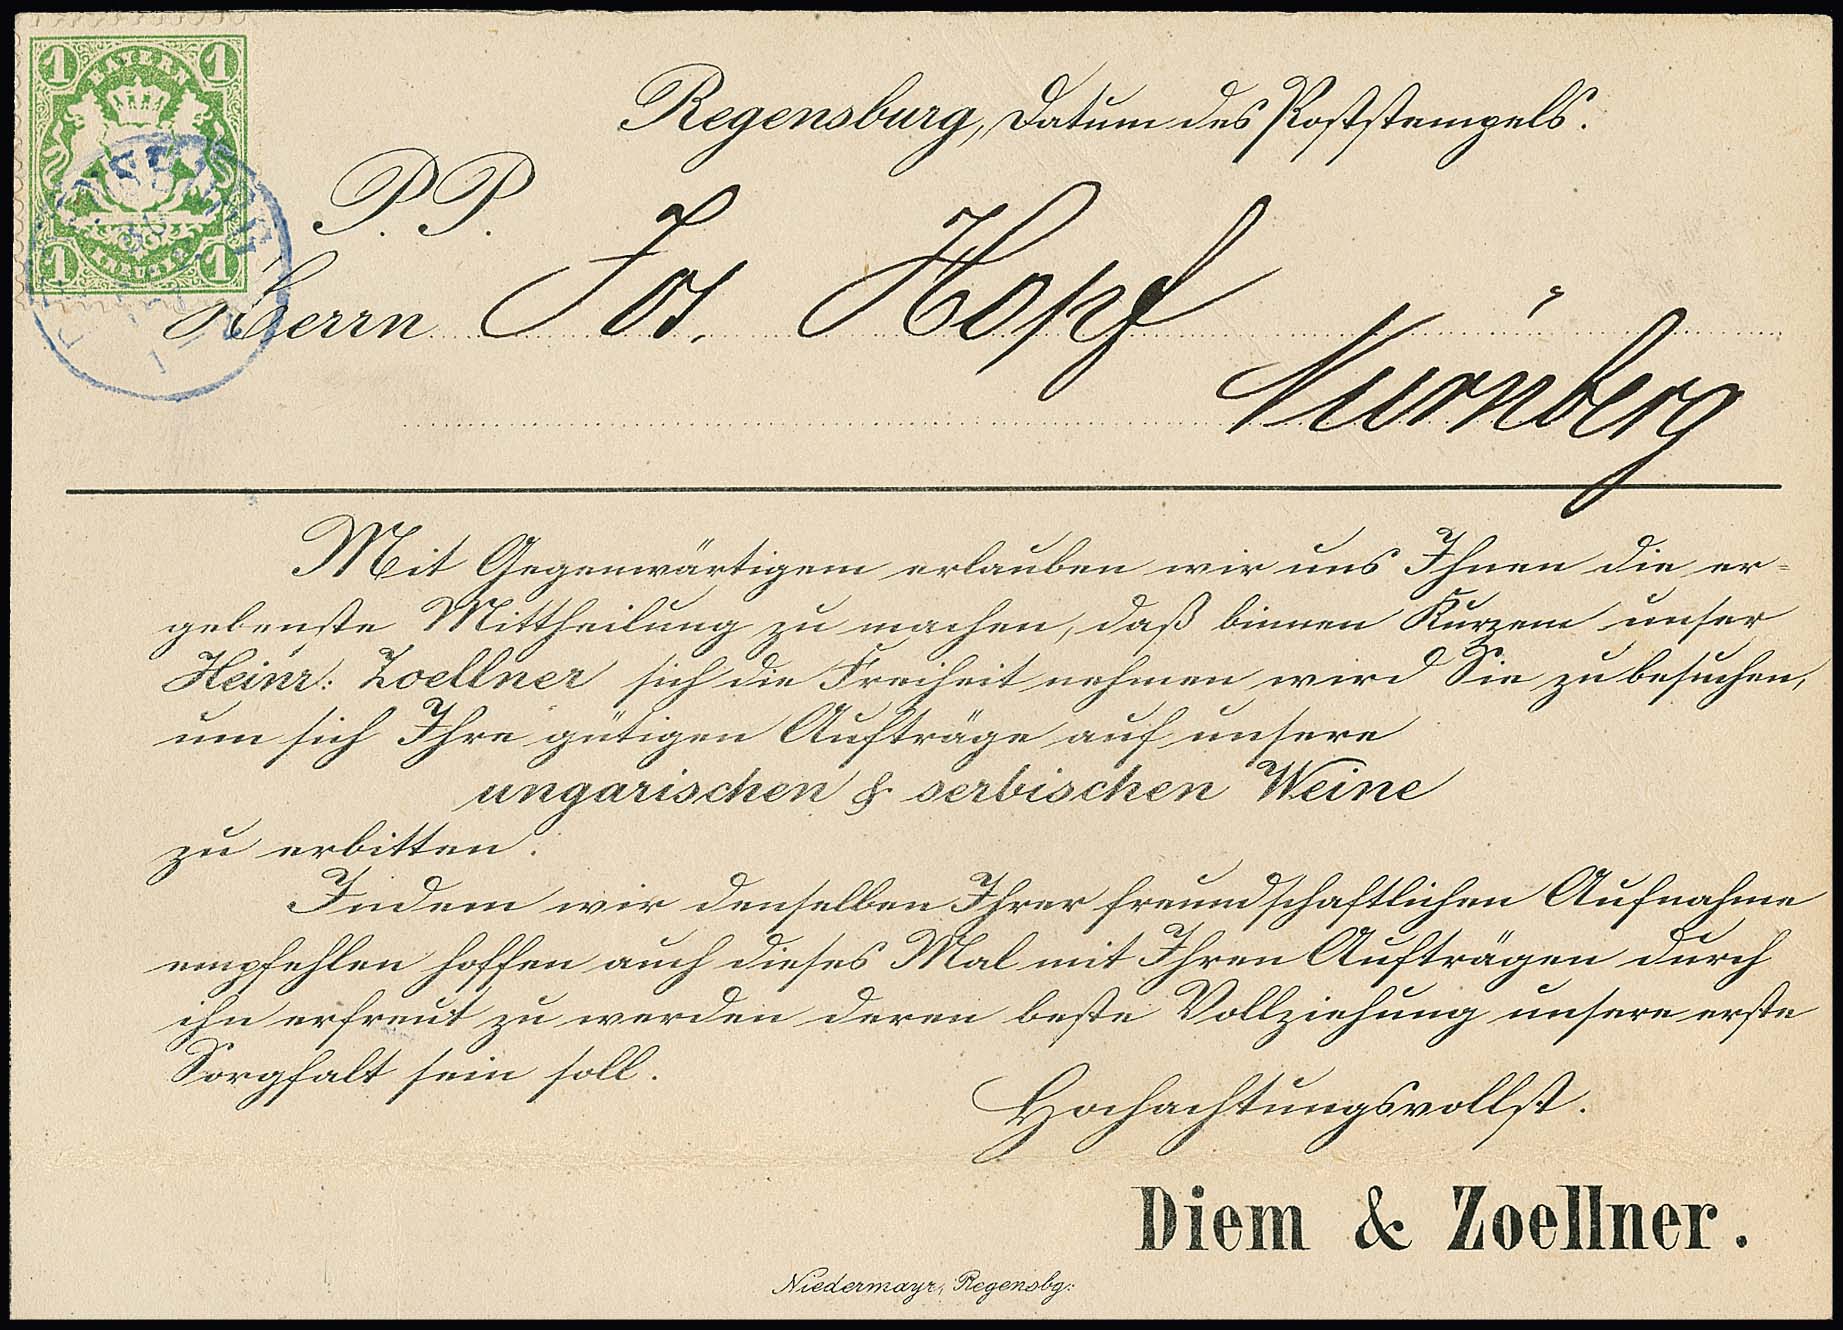 1 1
BAYERN
KREUZER
1 1
Regensburg, Datum des Poststempels.
P. P.
Herrn Jos. Hopf
Nürnberg
Mit Gegenwärtigem erlauben wir uns Ihnen die er=
gebenste Mittheilung zu machen, daß binnen Kurzem unser
Heinr: Zoellner sich die Freiheit nehmen wird Sie zu besuchen,
um sich Ihre gütigen Aufträge auf unsere
ungarischen & serbischen Weine
zu erbitten.
Indem wir denselben Ihrer freundschaftlichen Aufnahme
empfehlen hoffen auch dieses Mal mit Ihren Aufträgen durch
ihn erfreut zu werden deren beste Vollziehung unsere erste
Sorgfalt sein soll.
Hochachtungsvollst.
Diem & Zoellner.
Niedermayr, Regensbg: